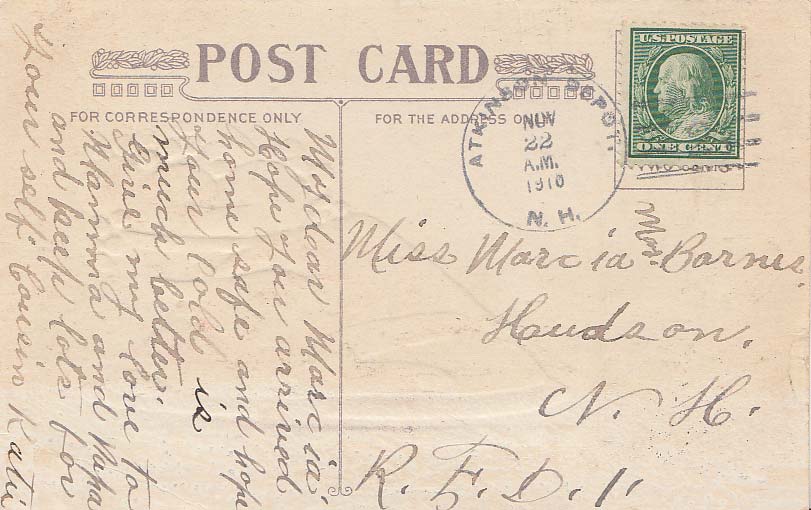 POST CARD
FOR CORRESPONDENCE ONLY
FOR THE ADDRESS ON
U.S. POSTAGE
ONE CENT
ATKINSON DEPOT
NOV
22
A.M.
1910
N. H.
My dear Marcia,
Hope you arrived
home safe and hope
your cold is
much better.
Give my love to
Mamma and Papa
and keep lots for
your self. Cousin Katie
Miss Marcia Mae Barnes
Haudson,
N. H.
R. F. D. 1.